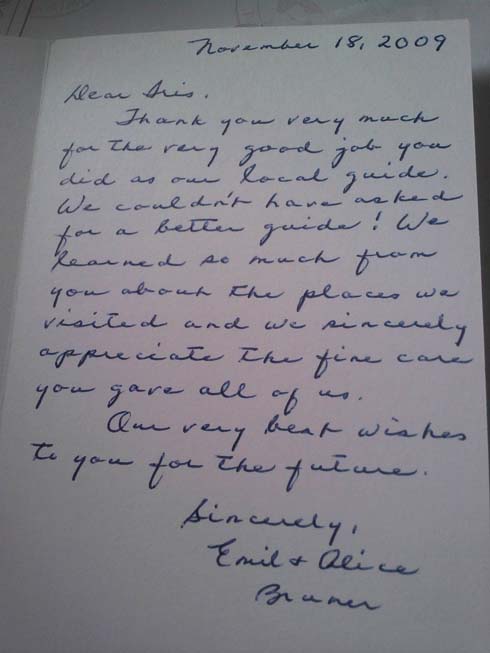 November 18, 2009
Dear Iris,
Thank you very much
for the very good job you
did as our local guide.
We couldn't have asked
for a better guide! We
learned so much from
you about the places we
visited and we sincerely
appreciate the fine care
you gave all of us.
Our very best wishes
to you for the future.
Sincerely,
Emil & Alice
Bruner